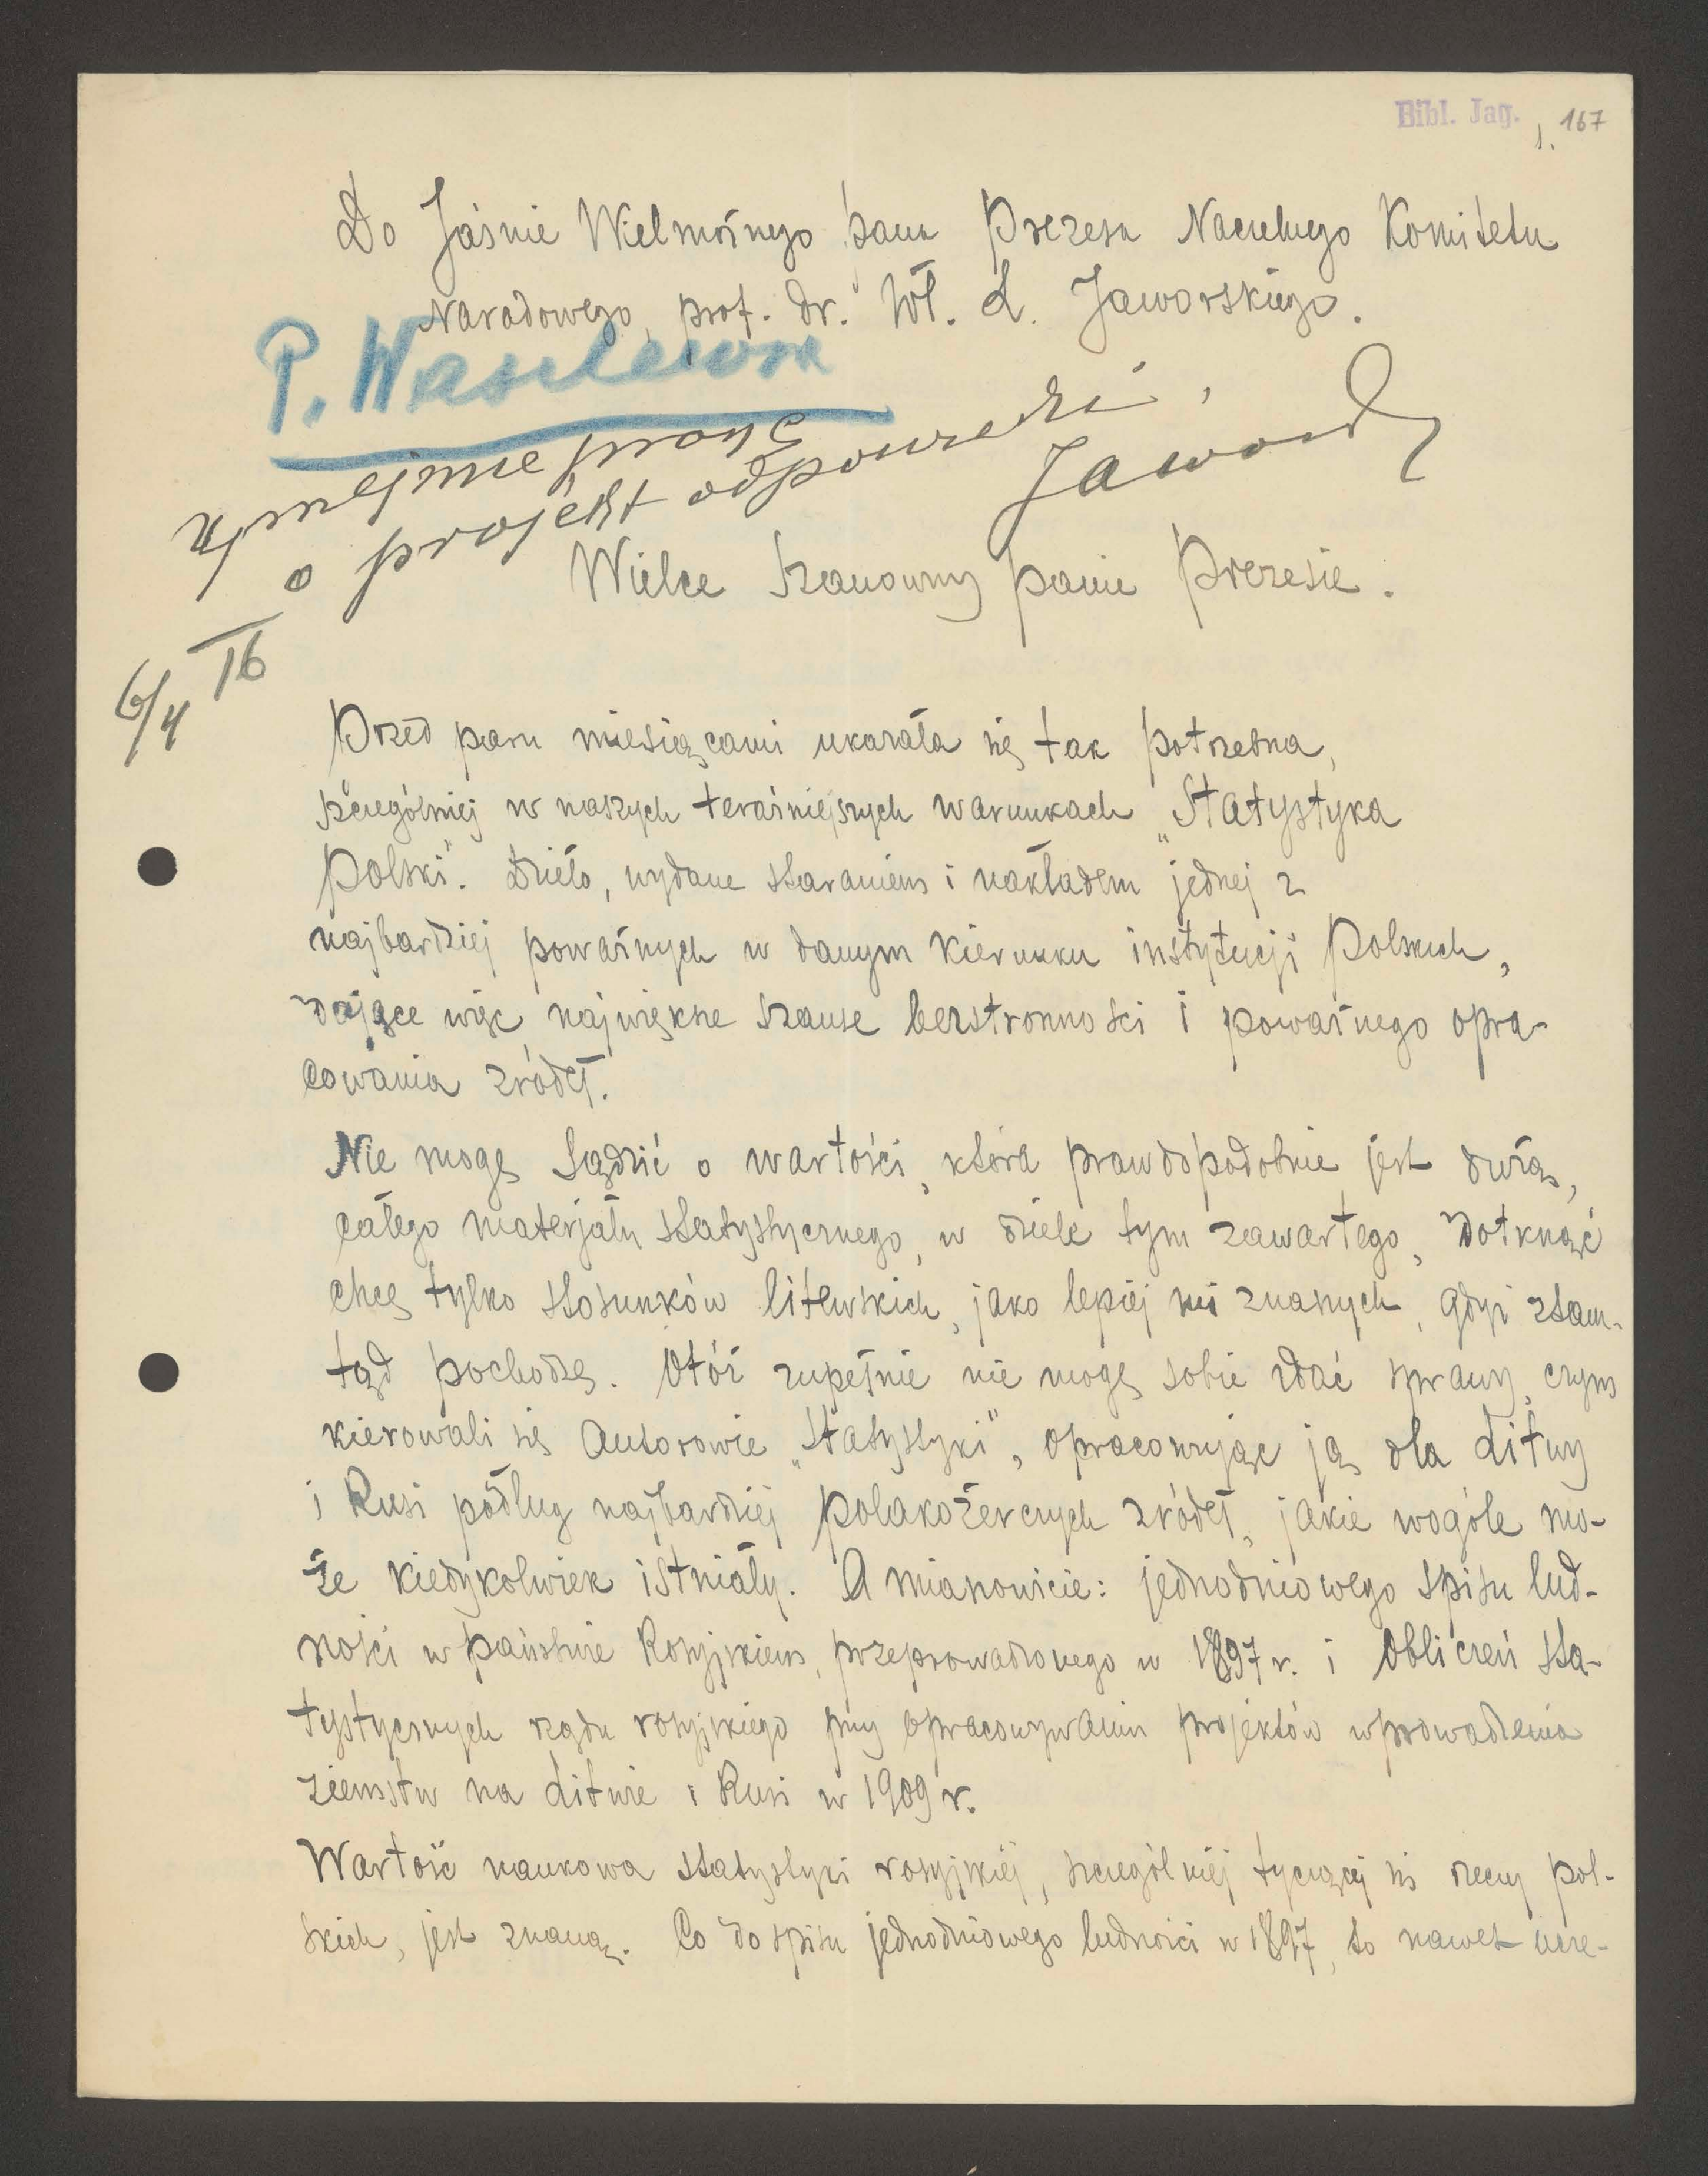 Bibl. Jag.
1. 167
Do Jaśnie Wielmożnego Pana Prezesa Naczelnego Komitetu
Narodowego, prof. Dr. Wł. L. Jaworskiego.
P. Wasilewski
Uprzejmie proszę
o projekt odpowiedzi.
Jaworski
6/4 16
Wielce Szanowny Panie Prezesie.
Przed paru miesiącami ukazała się tak potrzebna,
szczególniej w naszych teraźniejszych warunkach „Statystyka
Polski". Dzieło, wydane staraniem i nakładem jednej z
najbardziej poważnych w danym kierunku instytucji Polskich,
dające więc największe szanse bezstronności i poważnego opra-
cowania źródeł.
Nie mogę sądzić o wartości, która prawdopodobnie jest dużą,
całego materjału statystycznego, w dziele tym zawartego, dotknąć
chcę tylko stosunków litewskich, jako lepiej mi znanych, gdyż stam-
tąd pochodzę. Otóż zupełnie nie mogę sobie zdać sprawy, czym
kierowali się Autorowie „Statystyki", opracowując ją dla Litwy
i Rusi podług najbardziej polakożerczych źródeł, jakie wogóle mo-
że kiedykolwiek istniały. A mianowicie: jednodniowego spisu lud-
ności w państwie Rosyjskiem, przeprowadzonego w 1897 r. i obliczeń sta-
tystycznych rządu rosyjskiego przy opracowywaniu projektów wprowadzenia
ziemstw na Litwie i Rusi w 1909 r.
Wartość naukowa statystyki rosyjskiej, szczególniej tyczącej się rzeczy pol-
skich, jest znaną. Co do spisu jednodniowego ludności w 1897, to nawet